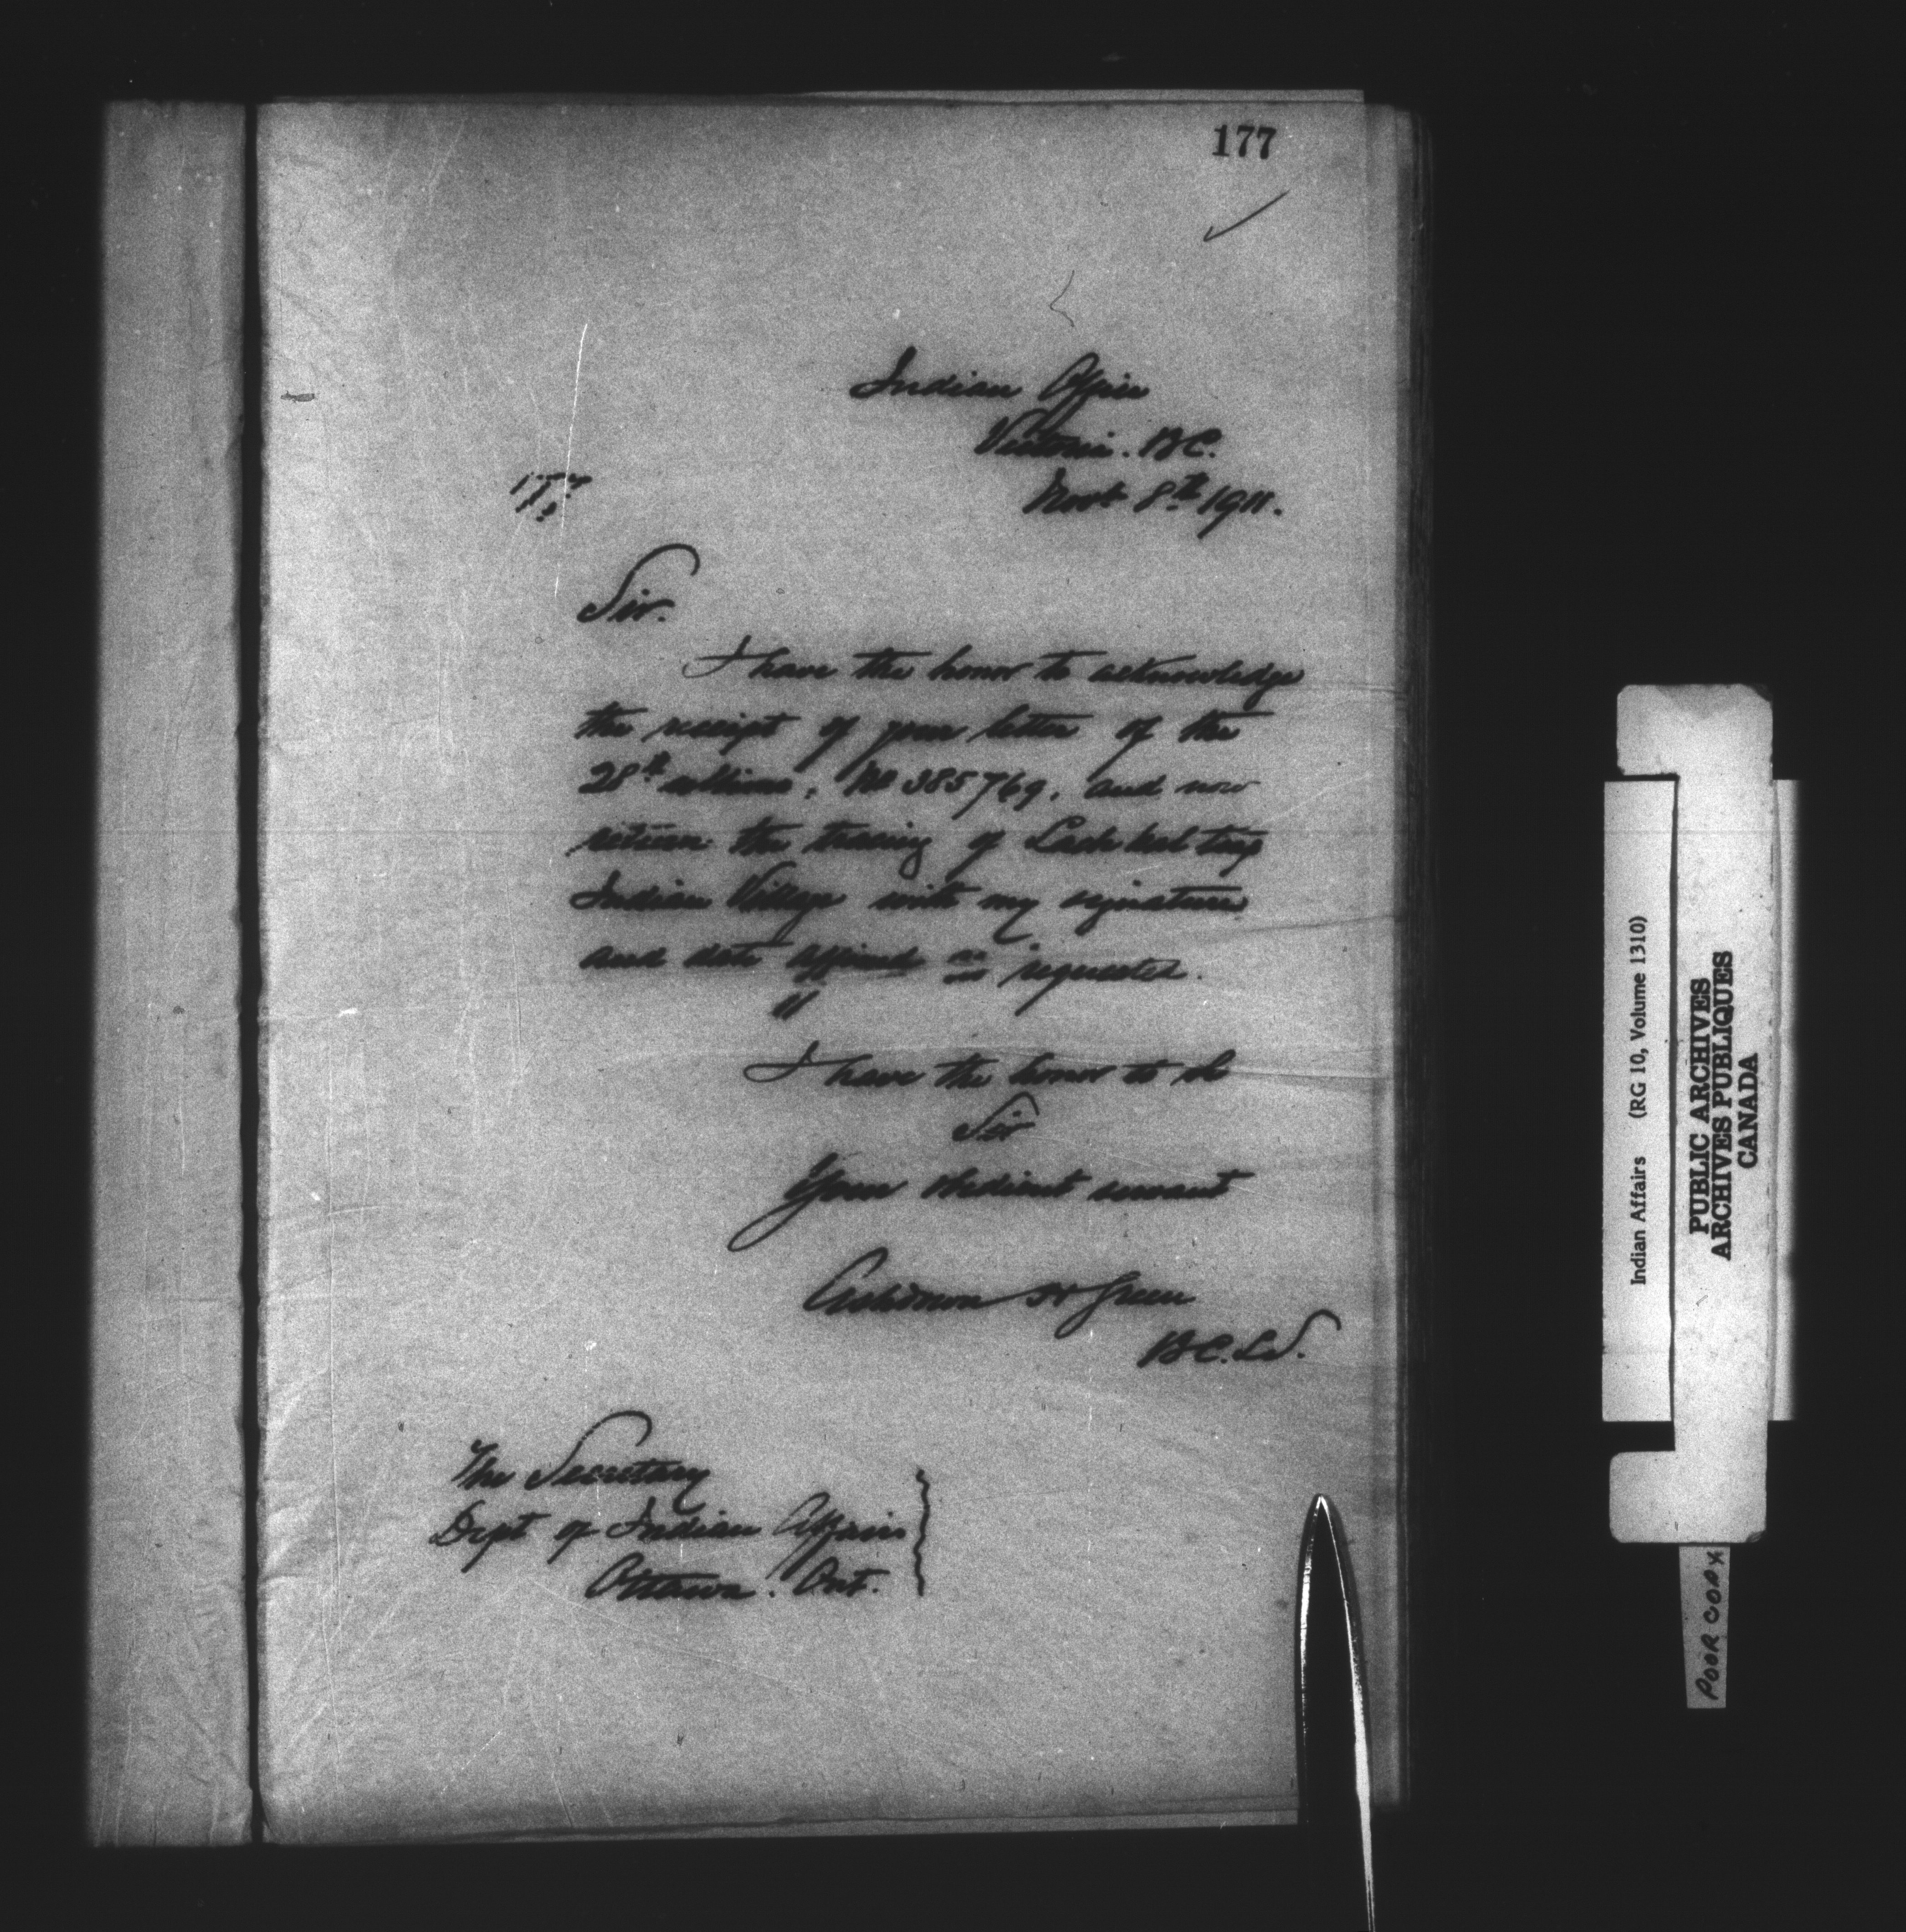 177
Indian Office
Victoria. B.C.
Novr 8th 1911.
177
Sir.
I have the honor to acknowledge
the receipt of your letter of the
28th ultimo, No 385769, and now
return the tracing of
Indian Village with my signature
and date affixed as requested.
I have the honor to be
Sir
Your obedient servant
Ashdown H Green
B.C.L.S.
The Secretary
Dept of Indian Affairs
Ottawa. Ont.
Indian Affairs (RG 10, Volume 1310)
PUBLIC ARCHIVES
ARCHIVES PUBLIQUES
CANADA
POOR COPY